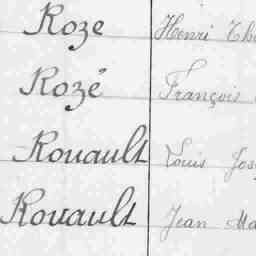 Roze Henri
Rozé François
Rouault Louis
Rouault Jean